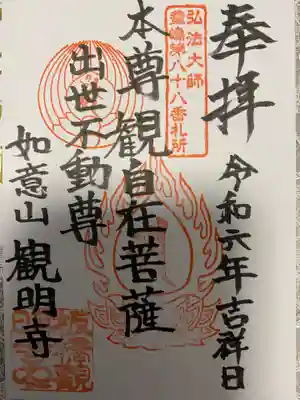 奉拝
令和六年吉祥日
弘法大師
豊嶋第八十八番札所
本尊観自在菩薩
出世不動尊
如意山 観明寺